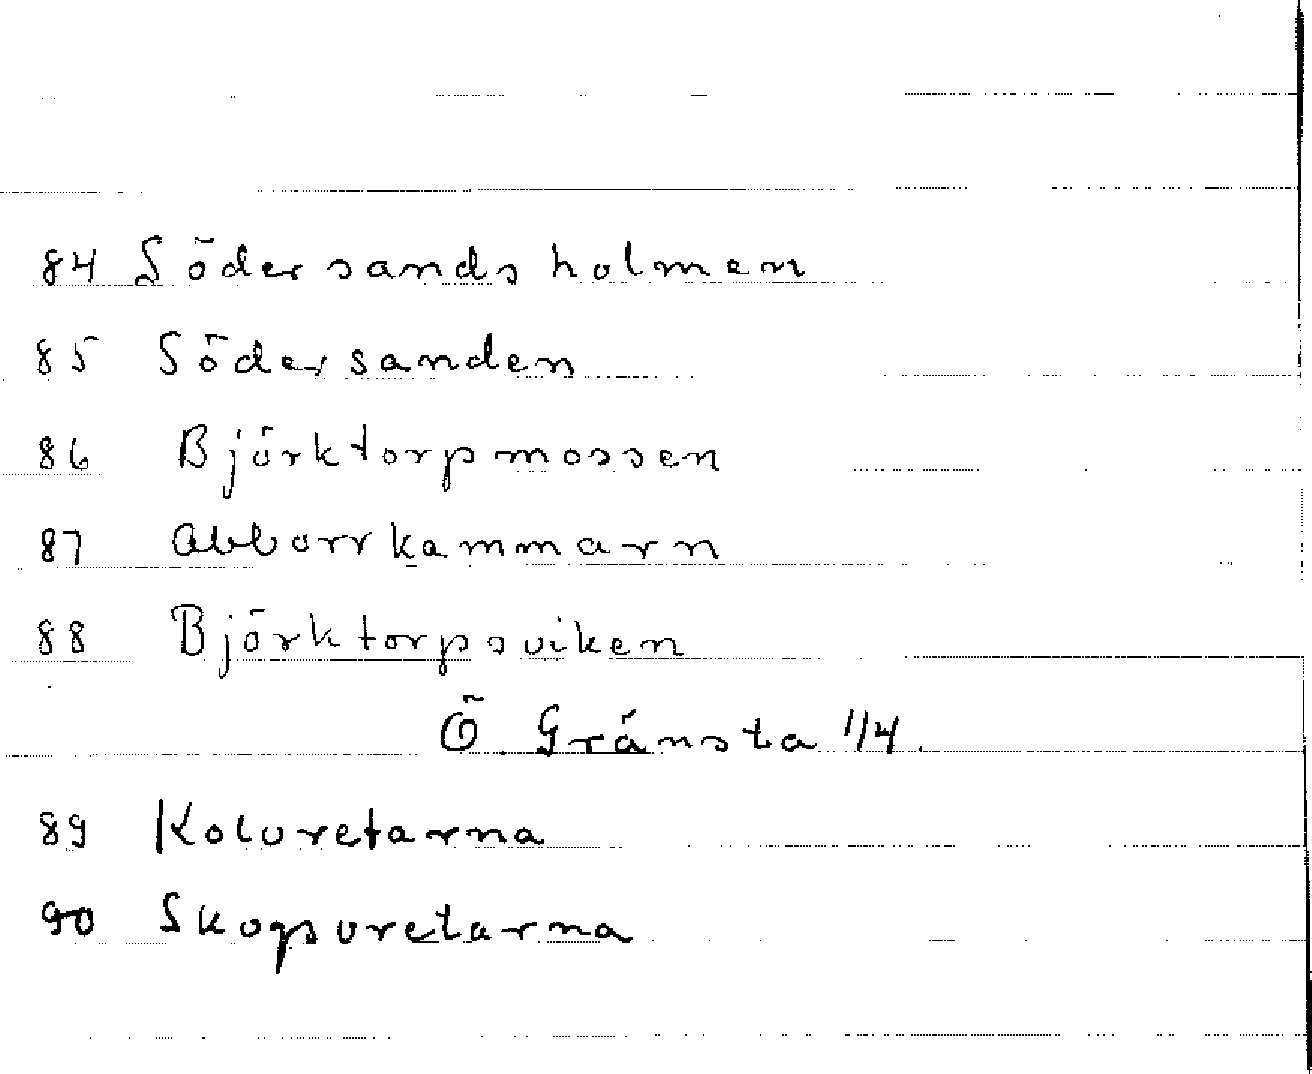 84 Södersandsholmen
85 Södersanden
86 Björktorpmossen
87 Abborrkammarn
88 Björktorpsviken
Ö Gränsta 1/4
89 Kolvretarna
90 Skogsvretarna